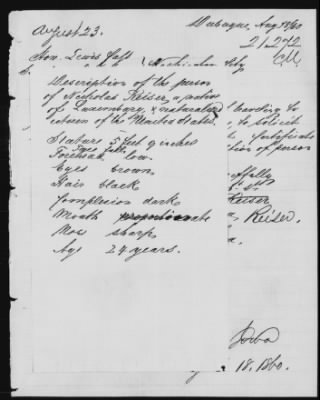 August 23.
Dubuque, Aug 18/60
21272
Hon. Lewis Cass
Washington City
Description of the person
of Nicholas Keiser, a native
of Luxemburg, & naturalized
citizen of the United States.
Stature 5 feet 9 inches
Forehead low
Eyes brown
Hair black
Complexion dark
Mouth proportionate
Nose sharp
Age 24 years.
to solicit
of person
Keiser
Keiser.
Iowa
18. 1860.